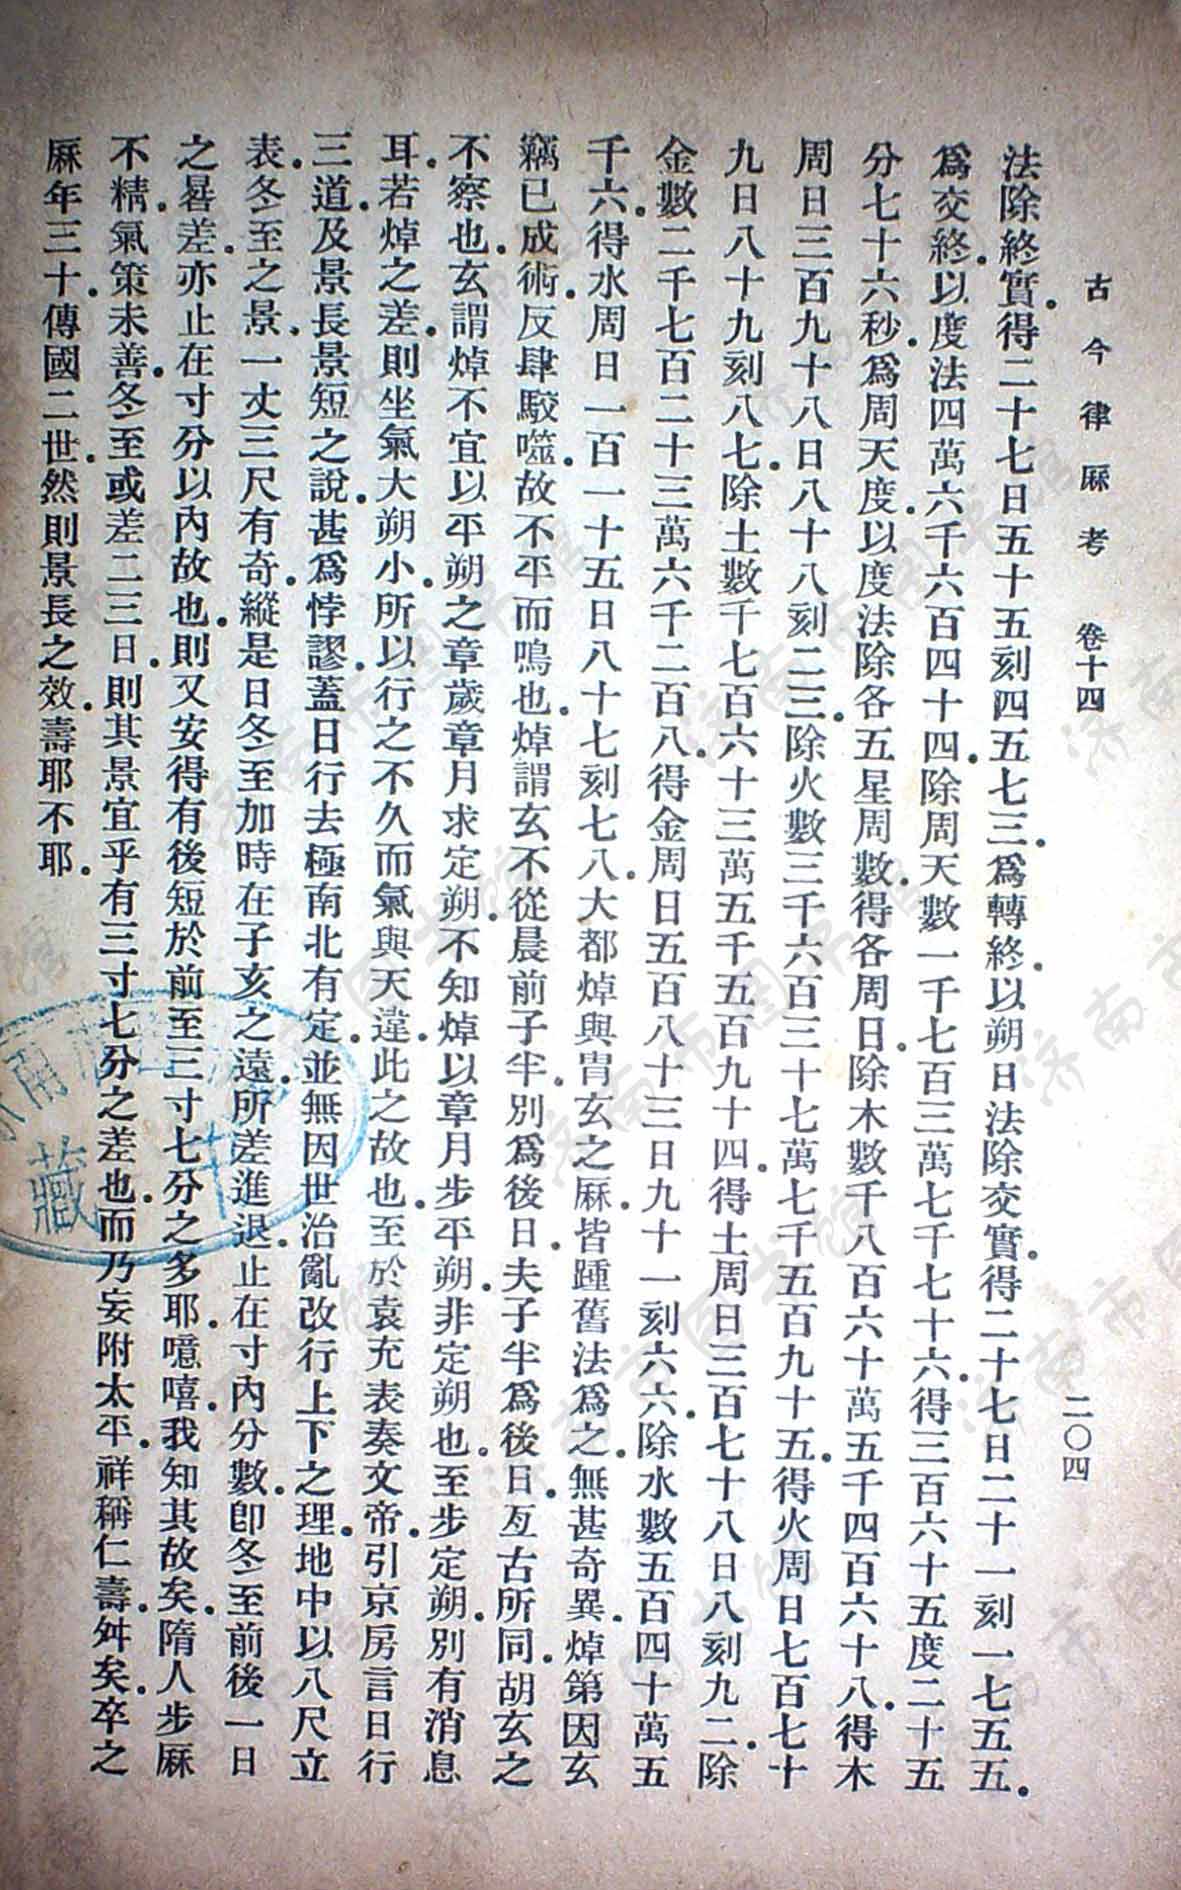 古今律厤考　卷十四　二〇四
法除終實。得二十七日五十五刻四五七三。爲轉終。以朔日法除交實。得二十七日二十一刻一七五五。
爲交終。以度法四萬六千六百四十四。除周天數一千七百三萬七千七十六。得三百六十五度二十五
分七十六秒。爲周天度。以度法除各五星周數。得各周日。除木數千八百六十萬五千四百六十八。得木
周日三百九十八日八十八刻二三。除火數三千六百三十七萬七千五百九十五。得火周日七百七十
九日八十九刻八七。除土數千七百六十三萬五千五百九十四。得土周日三百七十八日八刻九二。除
金數二千七百二十三萬六千二百八。得金周日五百八十三日九十一刻六六。除水數五百四十萬五
千六。得水周日一百一十五日八十七刻七八。大都焯與胄玄之厤。皆踵舊法爲之。無甚奇異。焯第因玄
竊已成術。反肆駮噬。故不平而鳴也。焯謂玄不從晨前子半。別爲後日。夫子半爲後日。亙古所同。胡玄之
不察也。玄謂焯不宜以平朔之章歲章月求定朔。不知焯以章月步平朔。非定朔也。至步定朔。別有消息
耳。若焯之差。則坐氣大朔小。所以行之不久而氣與天違。此之故也。至於袁充表奏文帝。引京房言日行
三道。及景長景短之說。甚爲悖謬。蓋日行去極南北有定。並無因世治亂改行上下之理。地中以八尺立
表。冬至之景。一丈三尺有奇。縱是日冬至加時在子亥之遠。所差進退。止在寸內分數。卽冬至前後一日
之晷差。亦止在寸分以內故也。則又安得有後短於前至三寸七分之多耶。噫嘻。我知其故矣。隋人步厤
不精。氣策未善。冬至或差二三日。則其景宜乎有三寸七分之差也。而乃妄附太平。祥稱仁壽。舛矣。卒之
厤年三十。傳國二世。然則景長之效。壽耶不耶。
藏